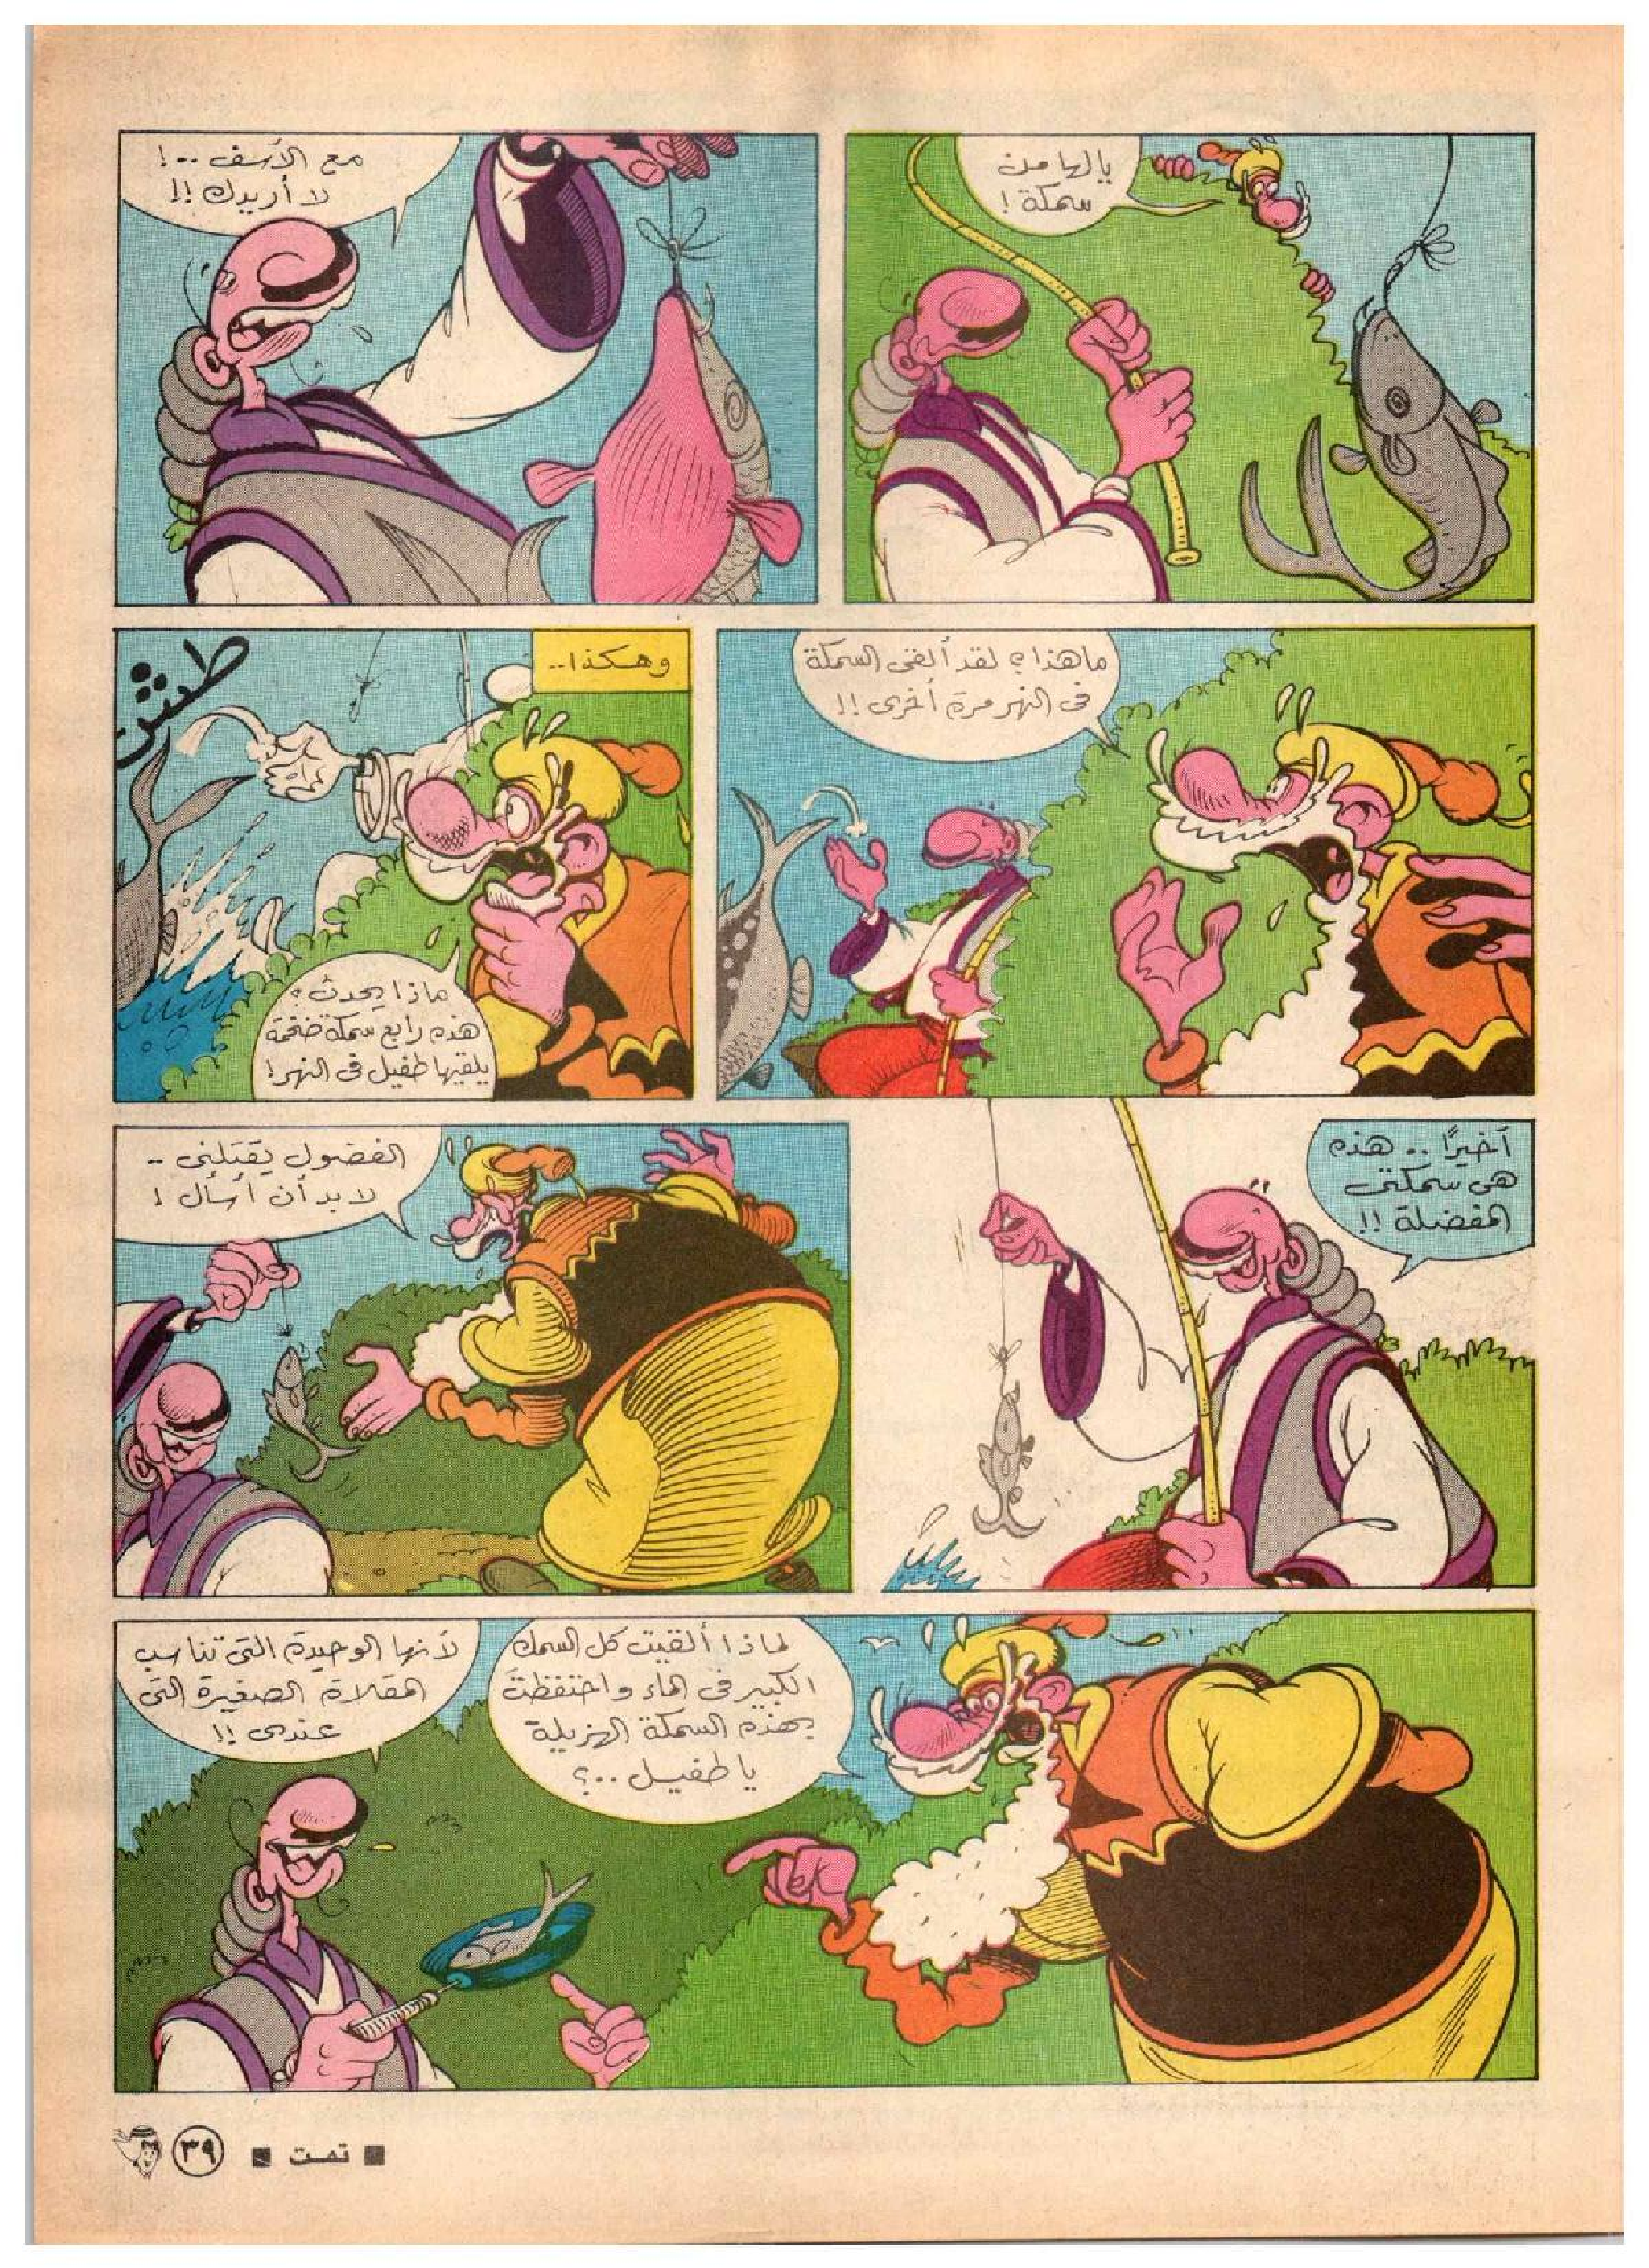 يالها من
سمكة !
مع الأسف ..!
لا أريدك !!
ما هذا ؟ لقد ألقى السمكة
فى النهر مرة أخرى !!
وهكذا..
طش
ماذا يحدث ؟
هذه رابع سمكة ضخمة
يلقيها طفيل فى النهر !
أخيرًا .. هذه
هى سمكتى
المفضلة !!
الفضول يقتلنى ..
لابد أن أسأل !
لماذا ألقيت كل السمك
الكبير فى الماء واحتفظت
بهذه السمكة الهزيلة
يا طفيل ..؟
لأنها الوحيدة التى تناسب
المقلاة الصغيرة التى
عندى !!
■ تمت ■
٣٩